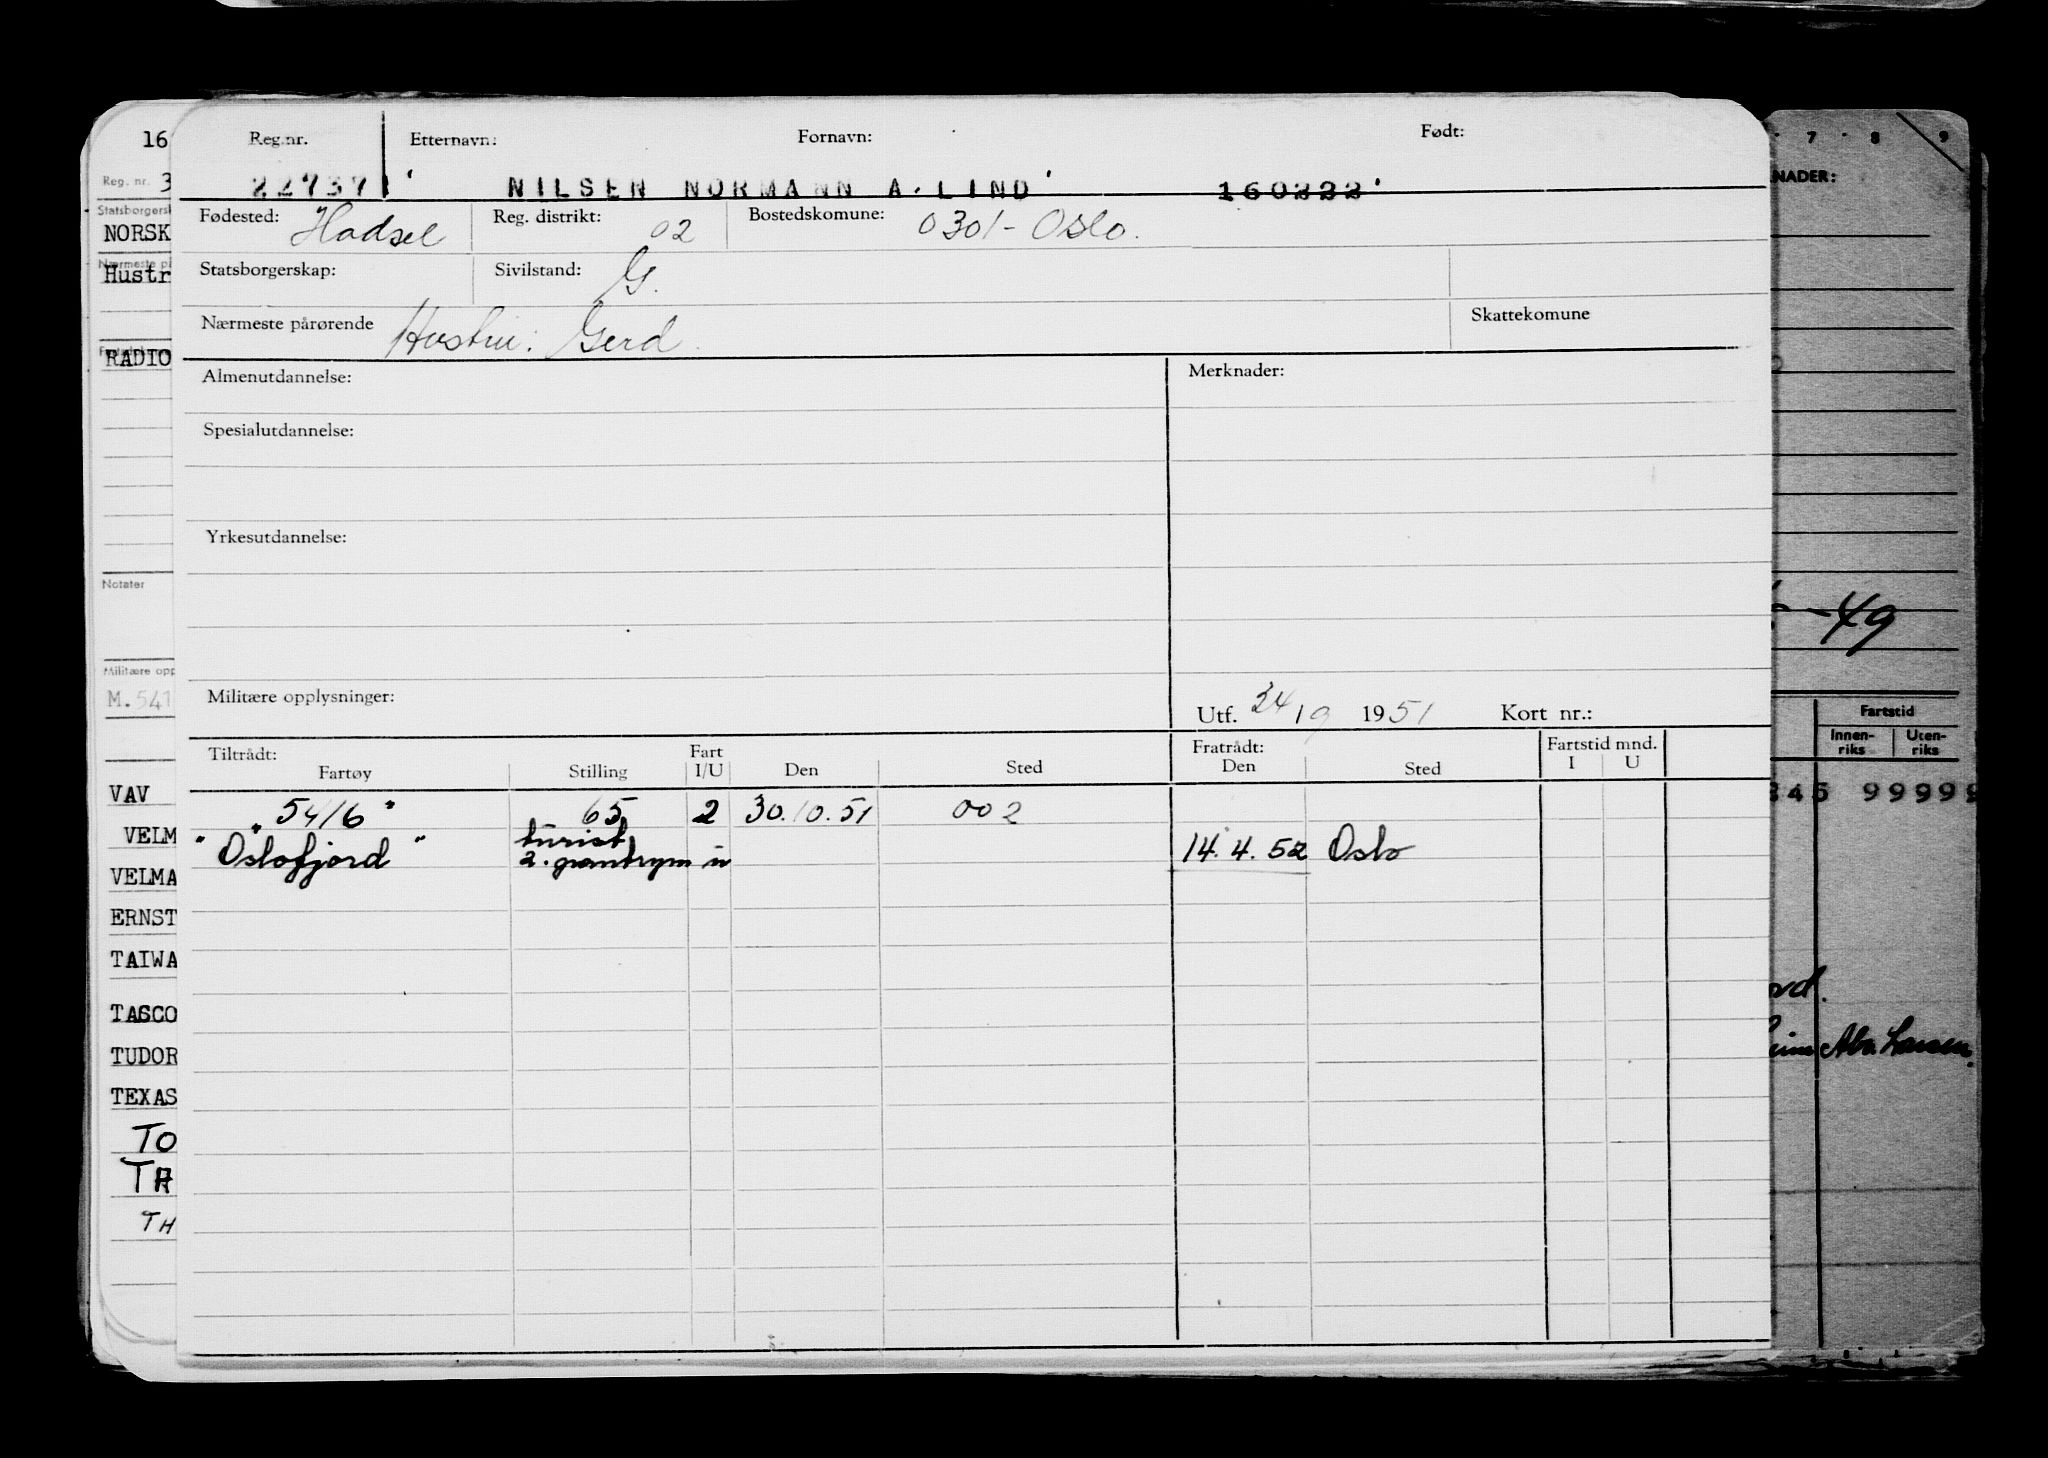 Reg.nr. Etternavn: Fornavn: Født:
227371 NILSEN NORMANN A. LIND 160222
Fødested: Hadsel Reg. distrikt: 02 Bostedskomune: 0301 - Oslo.
Statsborgerskap: Sivilstand: G.
Nærmeste pårørende Hustru: Gerd. Skattekomune
Almenutdannelse: Merknader:
Spesialutdannelse:
Yrkesutdannelse:
Militære opplysninger:
Utf. 24/9 1951 Kort nr.:
Tiltrådt: Fart Fratrådt: Fartstid mnd.
Fartøy Stilling I/U Den Sted Den Sted I U
"5416" 65 2 30.10.51 002
turist
"Oslofjord" 2. pantrym u 14.4.52 Oslo
16
Reg. nr. 3
Statsborgersk
NORSK
Nærmeste på
Hustr
RADIO
Notater
Militære opp
M. 541
VAV
VELM
VELMA
ERNST
TAIWA
TASCO
TUDOR
TEXAS
TO
TA
TH
7 8 9
NADER:
-49
Fartstid
Innen-riks Uten-riks
345 99999
ord.
eim Abr. Larsen.